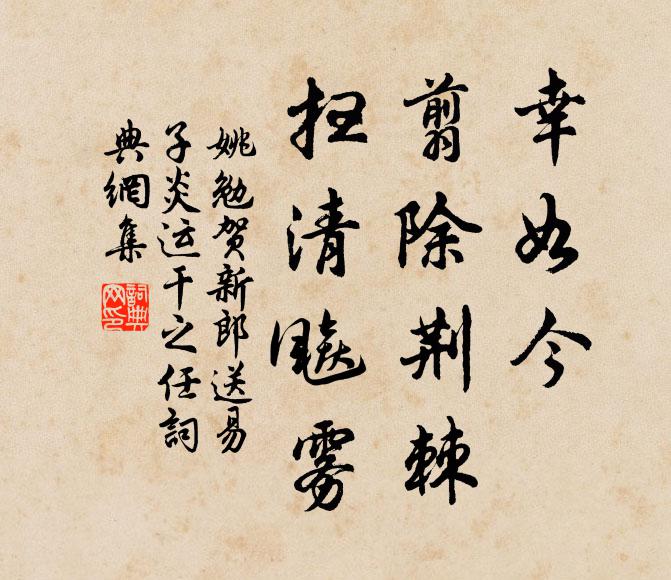 幸如今
翦除荆棘
扫清飈雾
姚勉贺新郎送易
子炎运干之任詞
典網集
詞典
网印